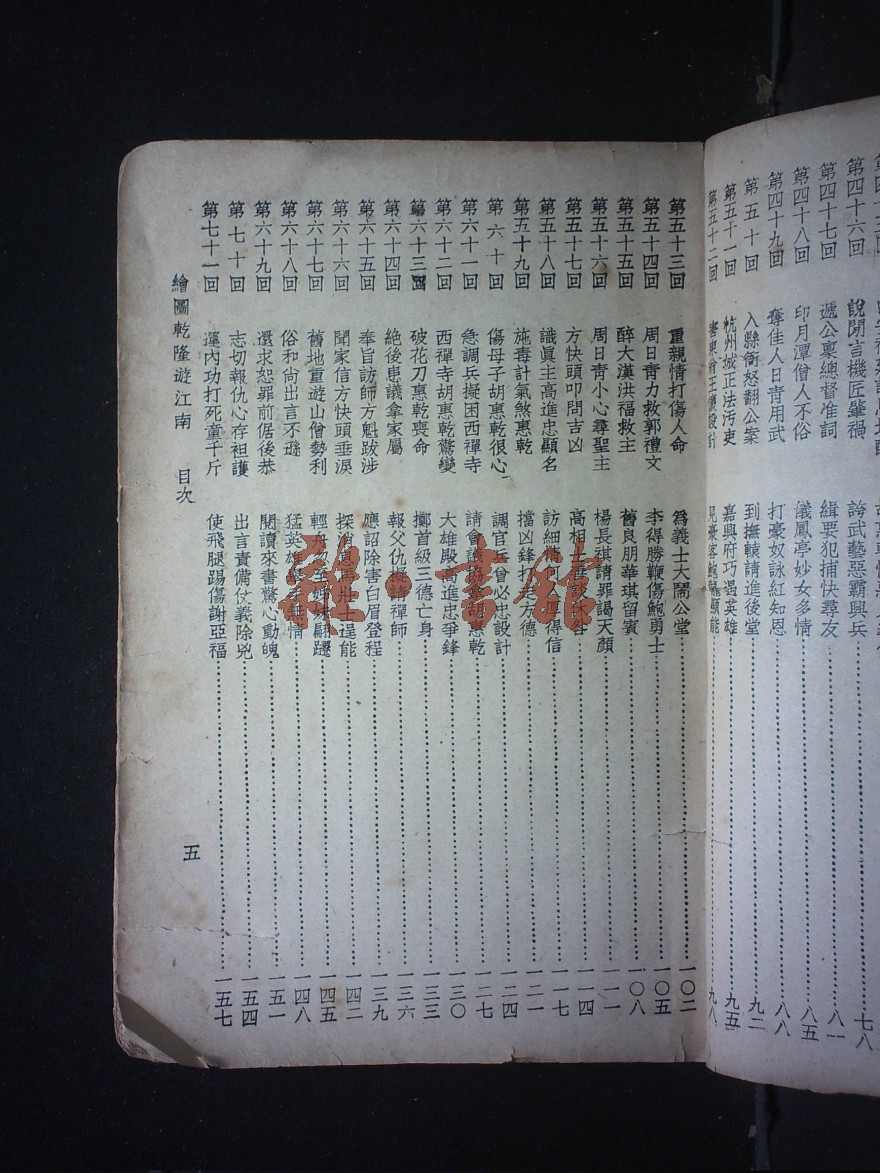 第四十六回 說閒言機匠肇禍 誇武藝惡霸興兵 七八
第四十七回 遞公稟總督准詞 緝要犯捕快尋友 八一
第四十八回 印月潭僧人不俗 儀鳳亭妙女多情 八五
第四十九回 奪佳人日青用武 打豪奴詠紅知恩 八八
第五十回 入縣衙怒翻公案 到撫轅請進後堂 九二
第五十一回 杭州城正法汚吏 嘉興府巧遇英雄 九五
第五十二回 九八
第五十三回 重親情打傷人命 爲義士大鬧公堂 一〇二
第五十四回 周日青力救郭禮文 李得勝鞭傷鮑勇士 一〇五
第五十五回 醉大漢洪福救主 舊良朋華琪留賓 一〇八
第五十六回 周日青小心尋聖主 楊長祺請罪謁天顏 一一一
第五十七回 方快頭叩問吉凶 高相士善談休咎 一一四
第五十八回 識眞主高進忠顯名 訪細情 得信 一一七
第五十九回 施毒計氣煞惠乾 擋凶鋒打死方德 一二一
第六十回 傷母子胡惠乾很心 調官兵曾必忠設計 一二四
第六十一回 急調兵擬困西禪寺 請會議協拿胡惠乾 一二七
第六十二回 西禪寺胡惠乾驚變 大雄殿高進忠爭鋒 一三〇
第六十三回 破花刀惠乾喪命 擲首級三德亡身 一三三
第六十四回 絶後患議拿家屬 報父仇擬請禪師 一三六
第六十五回 奉旨訪師方魁跋涉 應詔除害白眉登程 一三九
第六十六回 聞家信方快頭垂淚 探消息 壯士逞能 一四二
第六十七回 舊地重遊山僧勢利 輕舟忽至姊妹翩躚 一四五
第六十八回 俗和尙出言不遜 猛英雄舉手無情 一四八
第六十九回 還求恕罪前倨後恭 閱讀來書驚心動魄 一五一
第七十回 志切報仇心存袒護 出言責備仗義除兇 一五四
第七十一回 運內功打死童千斤 使飛腿踢傷謝亞福 一五七
繪圖乾隆遊江南 目次 五
雜·書館